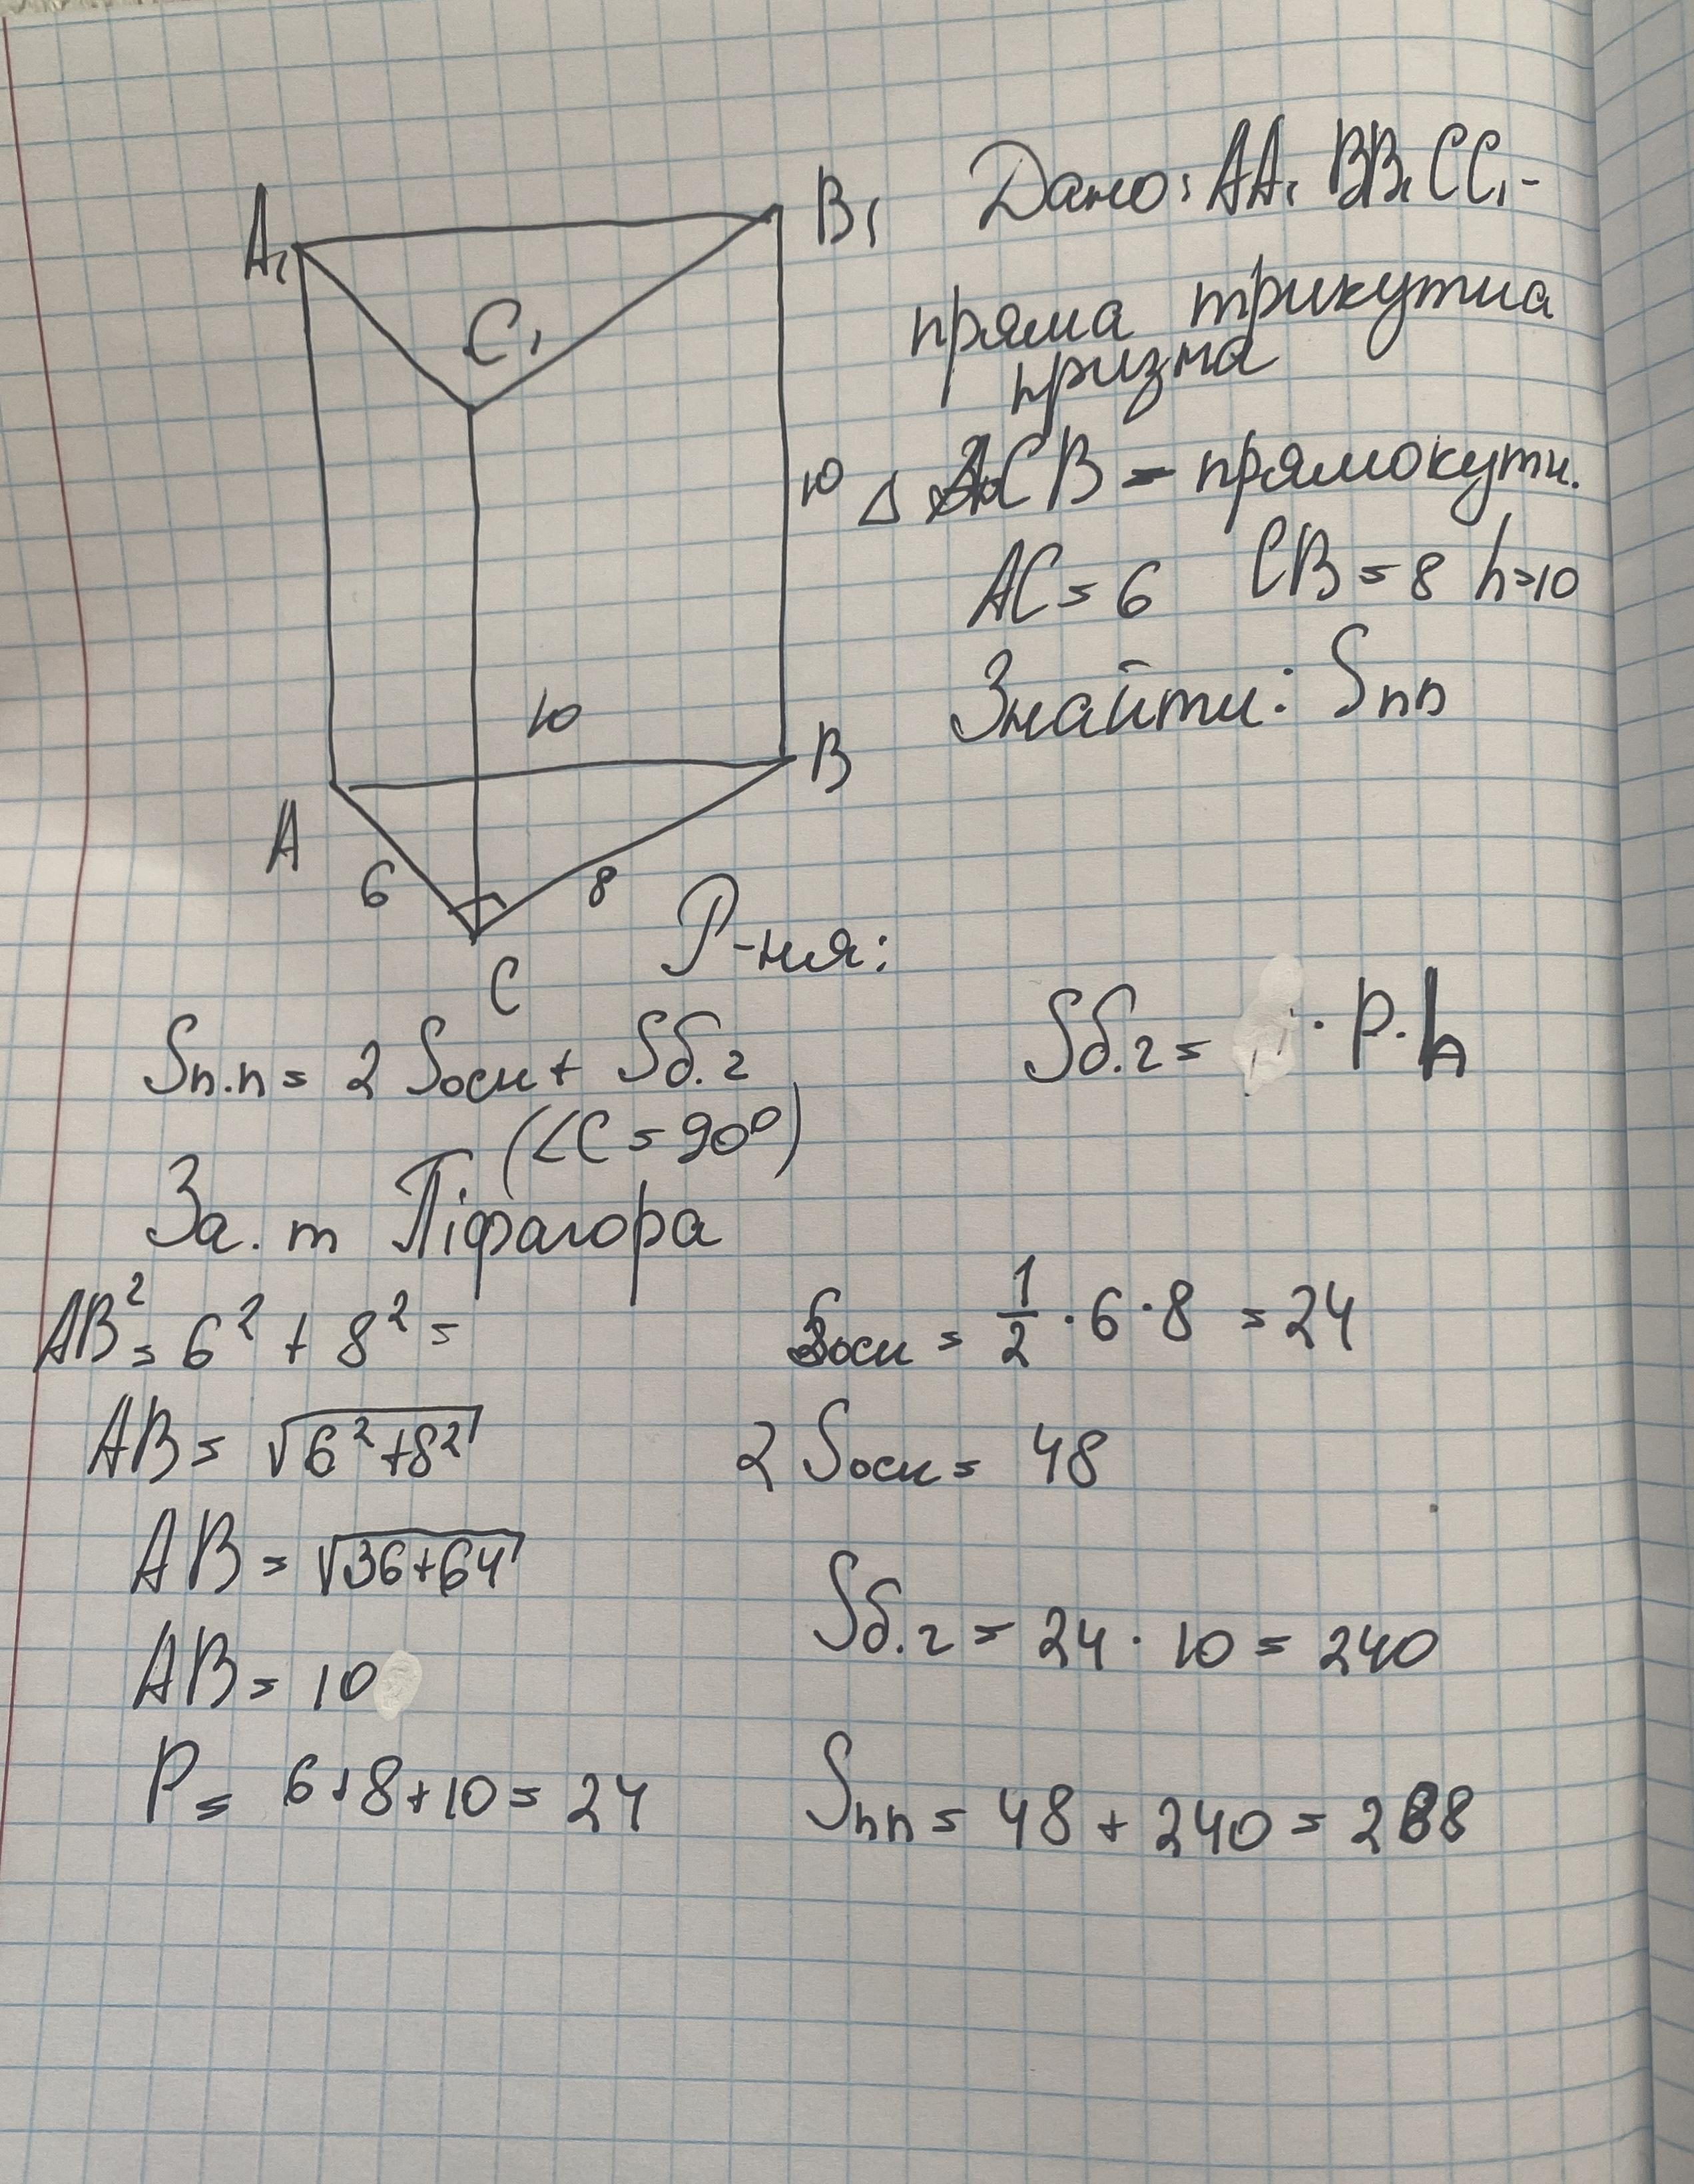 A₁
B₁
C₁
10
10
A
B
6
8
C
Дано: AA₁ BB₁ CC₁ -
пряма трикутна
призма
△ ACB - прямокутн.
AC = 6 CB = 8 h = 10
Знайти: Sпп
Р-ня:
Sп.п = 2 Sосн + Sб.г
Sб.г = · P · h
(∠C = 90°)
За. т Піфагора
AB² = 6² + 8² =
AB = √6² + 8²
AB = √36+64
AB = 10
P = 6+8+10 = 24
Sосн = 1/2 · 6 · 8 = 24
2 Sосн = 48
Sб.г = 24 · 10 = 240
Sпп = 48 + 240 = 288